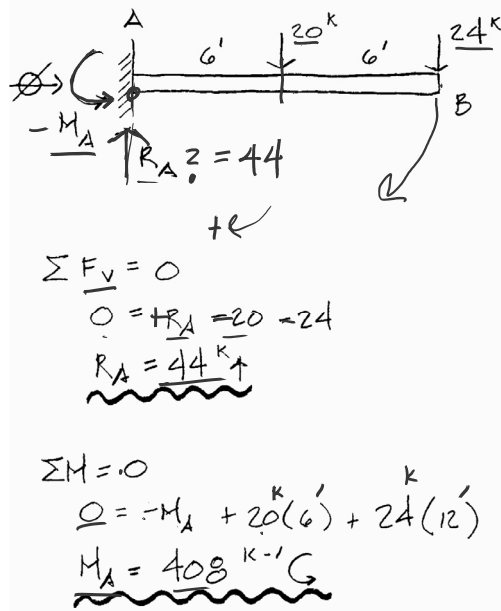 A
20ᵏ
24ᵏ
6' 6'
B
-M_A
R_A ? = 44
+
Σ F_V = 0
0 = +R_A -20 -24
R_A = 44ᵏ ↑
ΣM = 0
0 = -M_A + 20ᵏ(6') + 24ᵏ(12')
M_A = 408 ᵏ⁻'